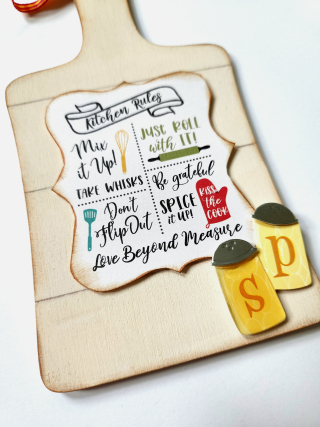 Kitchen Rules
Mix
it Up!
TAKE WHISKS
JUST ROLL
with IT!
Be grateful
Don't
Flip Out
SPICE
it UP!
KISS
the
COOK
Love Beyond Measure
s
p